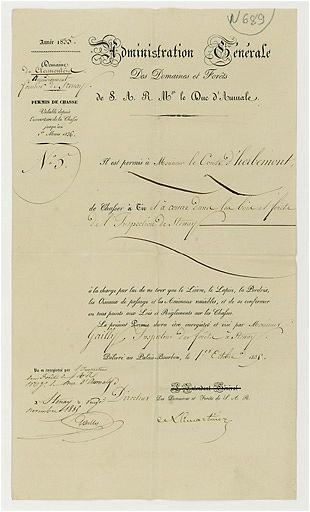 N 689
Année 1835.
Domaine
de Clermontois
Permis de Chasse
Valable depuis
l'ouverture de la Chasse
jusqu'au
1er Mars 1836.
N° 5.
Administration Générale
Des Domaines et Forêts
de S. A. R. Mgr le Duc d'Aumale.
Il est permis à Monsieur le Comte d'herbemont,
de Chasser à Tir et à courre dans les bois et forêts
de l'Inspection de Stenay
à la charge par lui de ne tirer que le Lièvre, le Lapin, la Perdrix,
les Oiseaux de passage et les Animaux nuisibles, et de se conformer
en tous points aux Lois et Réglements sur les Chasses.
Le présent Permis devra être enregistré et visé par Monsieur
Gailly, Inspecteur des forêts à Stenay
Délivré au Palais-Bourbon, le 1er Octobre 1835.
Vu et enregistré par
Stenay
novembre 1835
Gailly
L'Intendant Général
Directeur Des Domaines et Forêts de S. A. R.